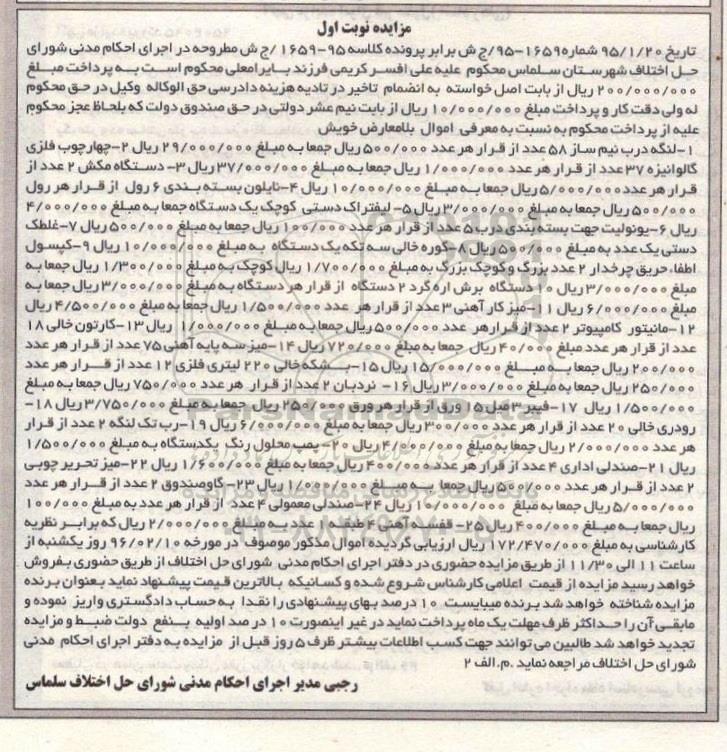 مزایده نوبت اول
تاریخ ۹۵/۱/۲۰ شماره ۱۶۵۹-۹۵/ج ش برابر پرونده کلاسه ۹۵-۱۶۵۹ /ج ش مطروحه در اجرای احکام مدنی شورای
حل اختلاف شهرستان سلماس محکوم علیه علی افسر کریمی فرزند بایرامعلی محکوم است به پرداخت مبلغ
۲۰۰/۰۰۰/۰۰۰ ریال از بابت اصل خواسته به انضمام تاخیر در تادیه هزینه دادرسی حق الوکاله وکیل در حق محکوم
له ولی دقت کار و پرداخت مبلغ ۱۰/۰۰۰/۰۰۰ ریال از بابت نیم عشر دولتی در حق صندوق دولت که بلحاظ عجز محکوم
علیه از پرداخت محکوم به نسبت به معرفی اموال بلامعارض خویش
۱-لنگه درب نیم ساز ۵۸ عدد از قرار هر عدد ۵۰۰/۰۰۰ ریال جمعا به مبلغ ۲۹/۰۰۰/۰۰۰ ریال ۲-چهارچوب فلزی
گالوانیزه ۳۷ عدد از قرار هر عدد ۱/۰۰۰/۰۰۰ ریال جمعا به مبلغ ۳۷/۰۰۰/۰۰۰ ریال ۳- دستگاه مکش ۲ عدد از
قرار هر عدد ۵/۰۰۰/۰۰۰ ریال جمعا به مبلغ ۱۰/۰۰۰/۰۰۰ ریال ۴-نایلون بسته بندی ۶ رول از قرار هر رول
۵۰۰/۰۰۰ ریال جمعا به مبلغ ۳/۰۰۰/۰۰۰ ریال ۵- لیفتراک دستی کوچک یک دستگاه جمعا به مبلغ ۴/۰۰۰/۰۰۰
ریال ۶-یونولیت جهت بسته بندی درب ۵ عدد از قرار هر عدد ۱۰۰/۰۰۰ ریال جمعا به مبلغ ۵۰۰/۰۰۰ ریال ۷-غلطک
دستی یک عدد به مبلغ ۵۰۰/۰۰۰ ریال ۸-کوره خالی سه تکه یک دستگاه به مبلغ ۱۰/۰۰۰/۰۰۰ ریال ۹-کپسول
اطفاء حریق چرخدار ۲ عدد بزرگ و کوچک بزرگ به مبلغ ۱/۷۰۰/۰۰۰ ریال کوچک به مبلغ ۱/۳۰۰/۰۰۰ ریال جمعا به
مبلغ ۳/۰۰۰/۰۰۰ ریال ۱۰-دستگاه برش اره گرد ۲ دستگاه از قرار هر دستگاه به مبلغ ۳/۰۰۰/۰۰۰ ریال جمعا به
مبلغ ۶/۰۰۰/۰۰۰ ریال ۱۱-میز کار آهنی ۳ عدد از قرار هر عدد ۱/۵۰۰/۰۰۰ ریال جمعا به مبلغ ۴/۵۰۰/۰۰۰ ریال
۱۲-مانیتور کامپیوتر ۲ عدد از قرار هر عدد ۵۰۰/۰۰۰ ریال جمعا به مبلغ ۱/۰۰۰/۰۰۰ ریال ۱۳-کارتون خالی ۱۸
عدد از قرار هر عدد مبلغ ۴۰/۰۰۰ ریال جمعا به مبلغ ۷۲۰/۰۰۰ ریال ۱۴-میز سه پایه آهنی ۷۵ عدد از قرار هر عدد
۲۰۰/۰۰۰ ریال جمعا به مبلغ ۱۵/۰۰۰/۰۰۰ ریال ۱۵-بشکه خالی ۲۲۰ لیتری فلزی ۱۲ عدد از قرار هر عدد
۲۵۰/۰۰۰ ریال جمعا به مبلغ ۳/۰۰۰/۰۰۰ ریال ۱۶- نردبان ۲ عدد از قرار هر عدد ۷۵۰/۰۰۰ ریال جمعا به مبلغ
۱/۵۰۰/۰۰۰ ریال ۱۷-فیبر ۳ میل ۱۵ ورق از قرار هر ورق ۲۵۰/۰۰۰ ریال جمعا به مبلغ ۳/۷۵۰/۰۰۰ ریال ۱۸-
رودری خالی ۲۰ عدد از قرار هر عدد ۳۰۰/۰۰۰ ریال جمعا به مبلغ ۶/۰۰۰/۰۰۰ ریال ۱۹-رب تک لنگه ۲ عدد از قرار
هر عدد ۲/۰۰۰/۰۰۰ ریال جمعا به مبلغ ۴/۰۰۰/۰۰۰ ریال ۲۰-پمپ محلول رنگ یکدستگاه به مبلغ ۱/۵۰۰/۰۰۰
ریال ۲۱-صندلی اداری ۴ عدد از قرار هر عدد ۴۰۰/۰۰۰ ریال جمعا به مبلغ ۱/۶۰۰/۰۰۰ ریال ۲۲-میز تحریر چوبی
۲ عدد از قرار هر عدد ۵۰۰/۰۰۰ ریال جمعا به مبلغ ۱/۰۰۰/۰۰۰ ریال ۲۳-گاوصندوق ۲ عدد از قرار هر عدد
۵/۰۰۰/۰۰۰ ریال جمعا به مبلغ ۱۰/۰۰۰/۰۰۰ ریال ۲۴-صندلی معمولی ۴ عدد از قرار هر عدد به مبلغ ۱۰۰/۰۰۰
ریال جمعا به مبلغ ۴۰۰/۰۰۰ ریال ۲۵-قفسه آهنی ۴ طبقه ۱ عدد به مبلغ ۲/۰۰۰/۰۰۰ ریال که برابر نظریه
کارشناسی به مبلغ ۱۷۲/۴۷۰/۰۰۰ ریال ارزیابی گردیده اموال مذکور موصوف در مورخه ۹۶/۰۲/۱۰ روز یکشنبه از
ساعت ۱۱ الی ۱۱/۳۰ از طریق مزایده حضوری در دفتر اجرای احکام مدنی شورای حل اختلاف از طریق حضوری بفروش
خواهد رسید مزایده از قیمت اعلامی کارشناس شروع شده و کسانیکه بالاترین قیمت پیشنهاد نماید بعنوان برنده
مزایده شناخته خواهد شد برنده میبایست ۱۰ درصد بهای پیشنهادی را نقدا به حساب دادگستری واریز نموده و
مابقی آن را حداکثر ظرف مهلت یک ماه پرداخت نماید در غیر اینصورت ۱۰ درصد اولیه بنفع دولت ضبط و مزایده
تجدید خواهد شد طالبین می توانند جهت کسب اطلاعات بیشتر ظرف ۵ روز قبل از مزایده به دفتر اجرای احکام مدنی
شورای حل اختلاف مراجعه نماید .م.الف ۲
رجبی مدیر اجرای احکام مدنی شورای حل اختلاف سلماس